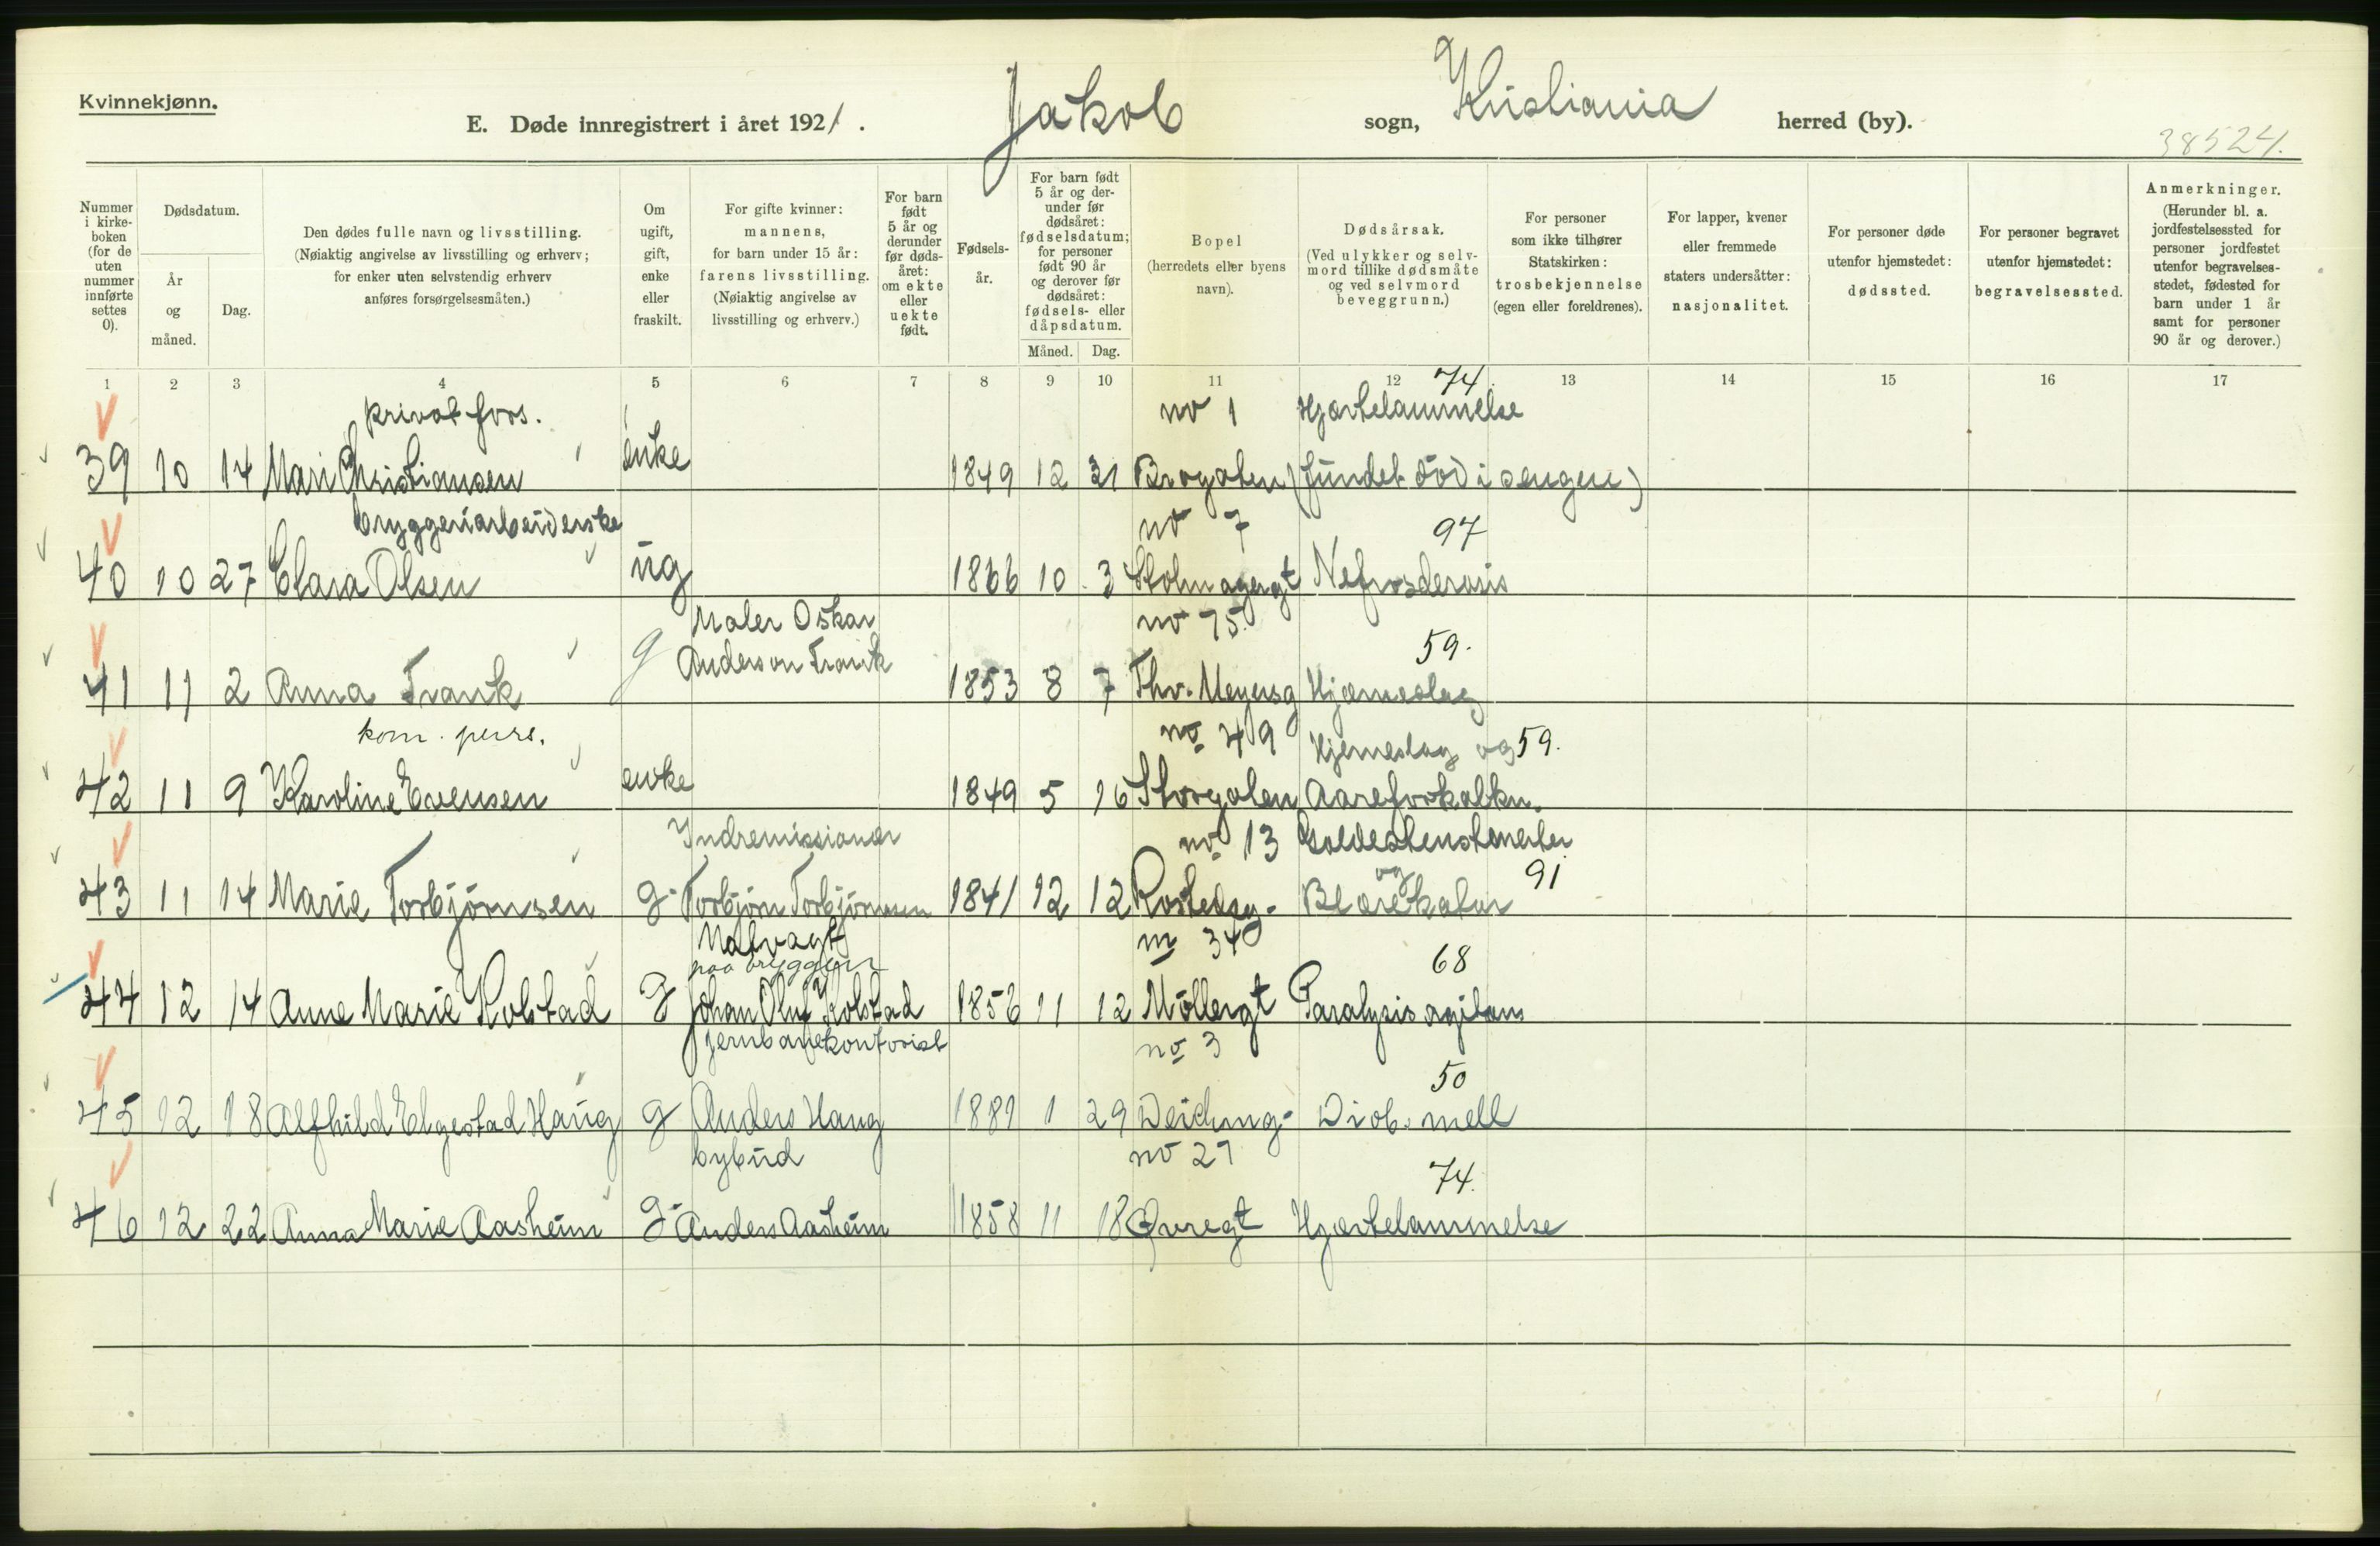 Kvinnekjønn.
E. Døde innregistrert i året 1921. Jakob sogn, Kristiania herred (by).
38524.
Nummer i kirke-boken (for de uten nummer innførte settes 0).
Dødsdatum.
År og måned.
Dag.
Den dødes fulle navn og livsstilling. (Nøiaktig angivelse av livsstilling og erhverv; for enker uten selvstendig erhverv anføres forsørgelsesmåten.)
Om ugift, gift, enke eller fraskilt.
For gifte kvinner: mannens, for barn under 15 år: farens livsstilling. (Nøiaktig angivelse av livsstilling og erhverv.)
For barn født 5 år og derunder før døds-året: om ekte eller uekte født.
Fødsels-år.
For barn født 5 år og der-under før dødsåret: fødselsdatum; for personer født 90 år og derover før dødsåret: fødsels- eller dåpsdatum.
Måned. Dag.
Bopel (herredets eller byens navn).
Dødsårsak. (Ved ulykker og selv-mord tillike dødsmåte og ved selvmord beveggrunn.)
For personer som ikke tilhører Statskirken: trosbekjennelse (egen eller foreldrenes).
For lapper, kvener eller fremmede staters undersåtter: nasjonalitet.
For personer døde utenfor hjemstedet: dødssted.
For personer begravet utenfor hjemstedet: begravelsessted.
Anmerkninger. (Herunder bl. a. jordfestelsessted for personer jordfestet utenfor begravelses-stedet, fødested for barn under 1 år samt for personer 90 år og derover.)
1 2 3 4 5 6 7 8 9 10 11 12 13 14 15 16 17
privat fors. no 1 Hjertelammelse 74.
39 10 14 Mari Christiansen enke 1849 12 31 Brogaten (fundet död i sengen)
bryggeriarbeiderske no 7 97
40 10 27 Clara Olsen ug 1866 10 3 Holmagergt Nefrosclerosis
Maler Oskar no 75. 59.
41 11 2 Anna Frank g Anderson Frank 1853 8 7 Thv. Meyersg Hjerneslag
kom. pens. no 49 Hjerneslag og 59.
42 11 9 Karoline Evensen enke 1849 5 16 Storgaten Aareforkalkn.
Indremissionær no 13 Galdestensmerter
og 91
43 11 14 Marie Torbjörnsen g. Torbjörn Torbjörnsen 1841 12 12 Rostedsg. Blærekatar
Natvagt
paa bryggen no 34 68
44 12 14 Anne Marie Kolstad g Johan Oluf Kolstad 1856 11 12 Möllergt Paralysis agitans
jernbanekontorist no 3 50
45 12 18 Alfhild Elgestad Haug g Anders Haug 1889 1 29 Diab. mell
bybud no 27 74.
46 12 22 Anna Marie Aasheim g. Anders Aasheim 1858 11 18 Øvregt Hjertelammelse